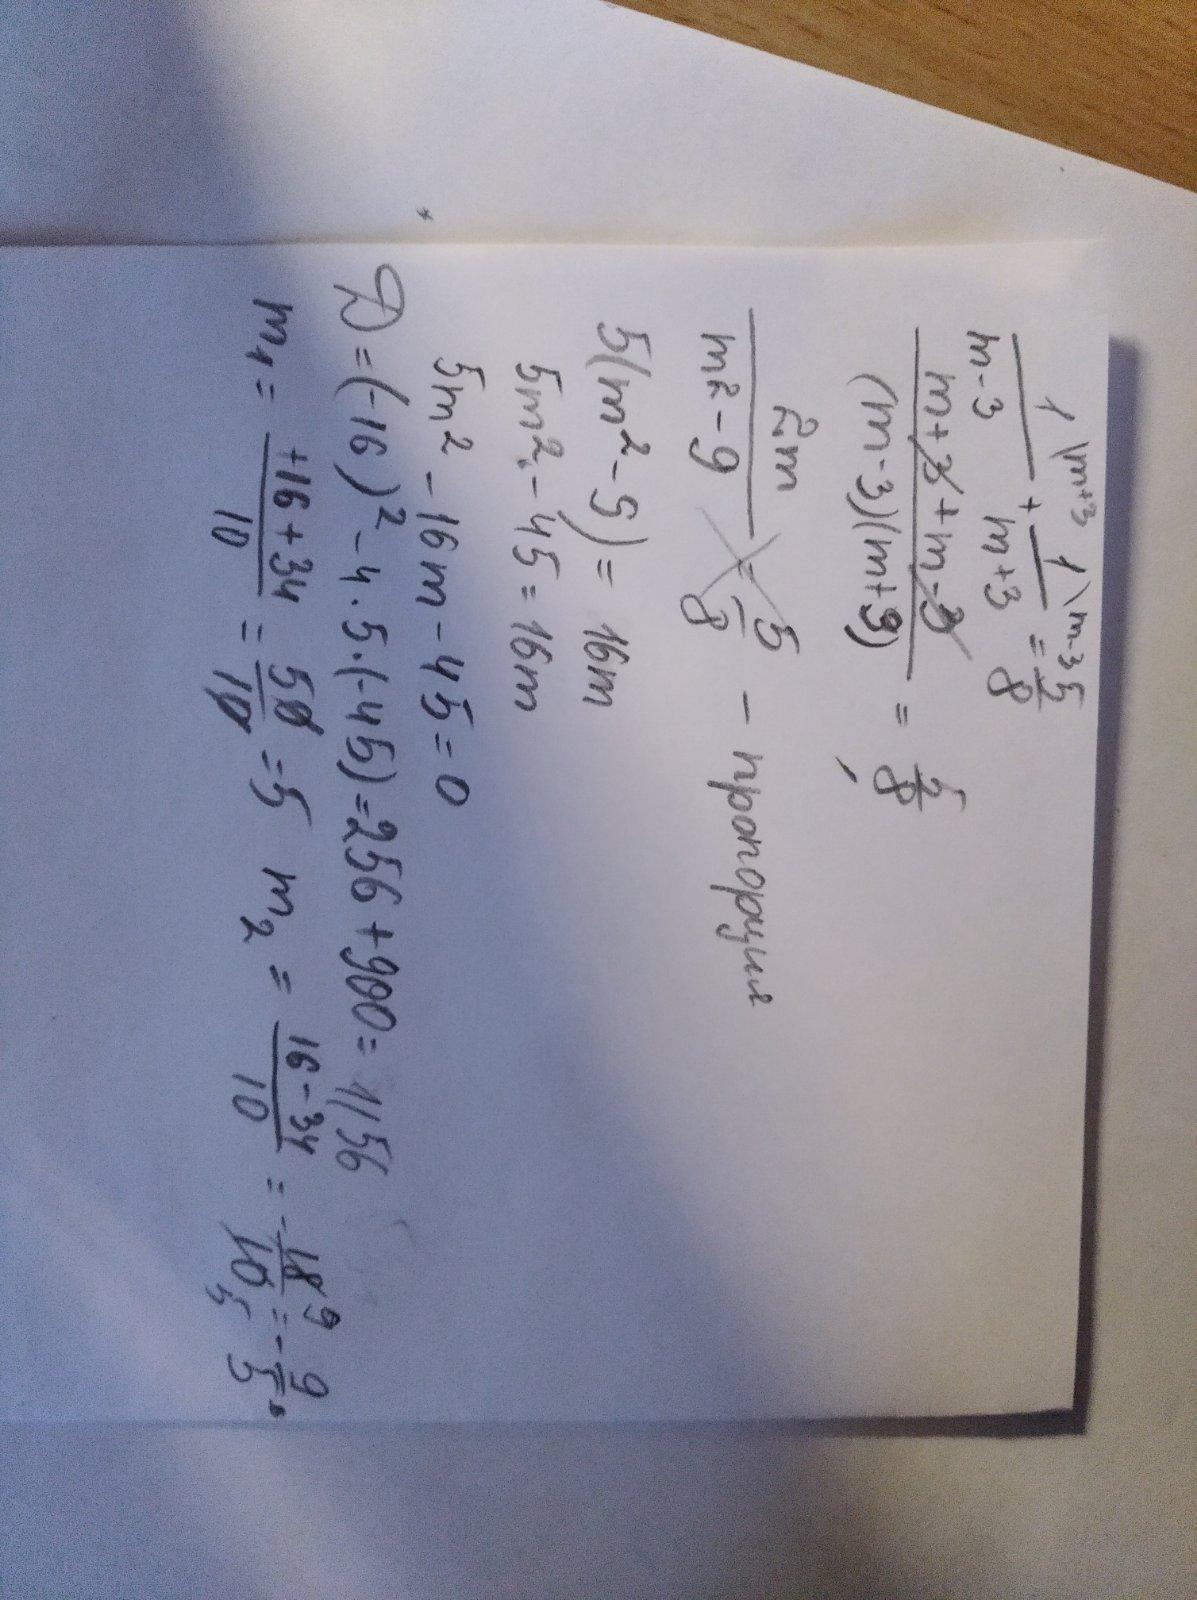 1\m+3 / m-3 + 1\m-3 / m+3 = 5/8
m+3+m-3 / (m-3)(m+3) = 5/8
2m / m²-9 = 5/8 - пропорция
5(m²-9) = 16m
5m²-45=16m
5m²-16m-45=0
D=(-16)²-4·5·(-45)=256+900=1156
m₁ = +16+34 / 10 = 50/10 =5 m₂ = 16-34 / 10 = -18 9/10 5 = -9/5.